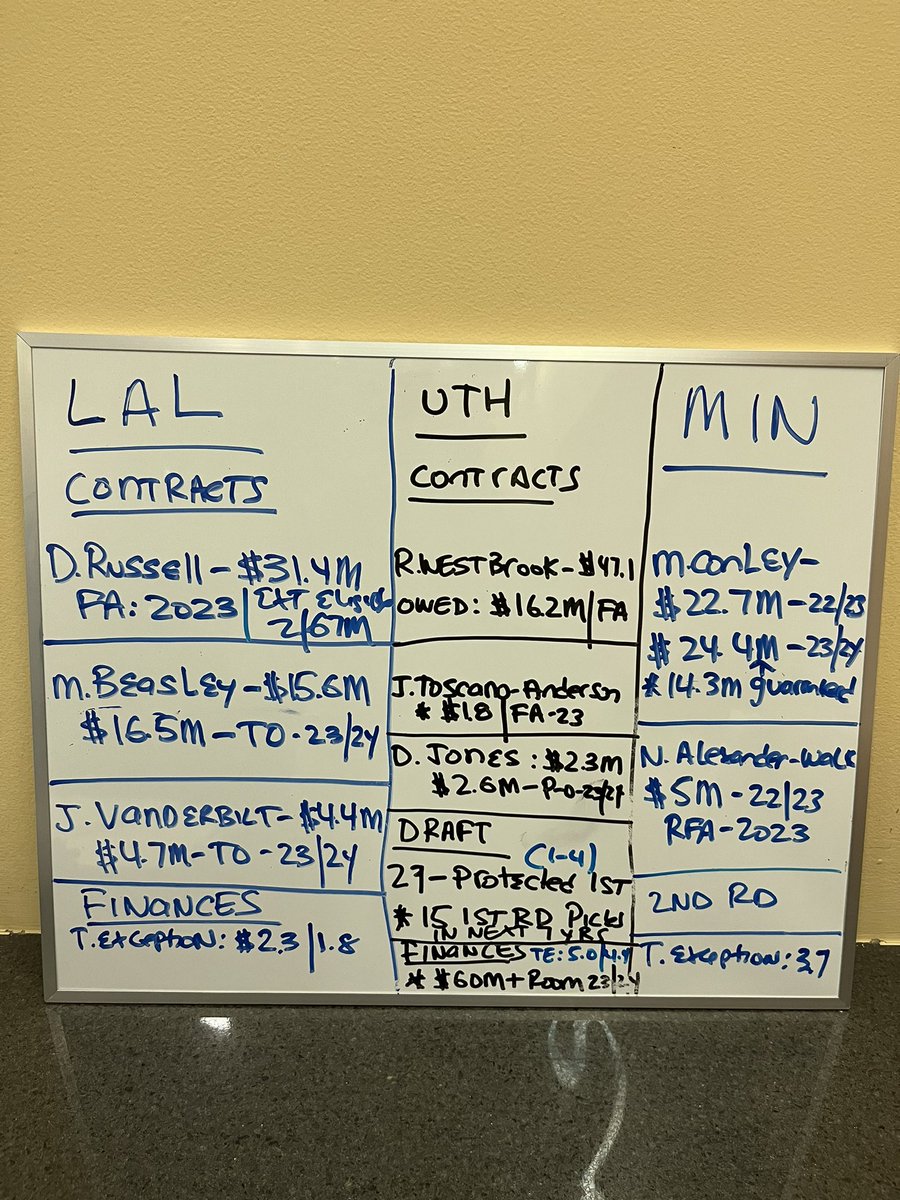 LAL
CONTRACTS
D. Russell - $31.4M
FA: 2023 | EXT
2/67M
M. BEASLEY - $15.6M
$16.5M - TO - 23/24
J. VANDERBILT - $4.4M
$4.7M - TO - 23/24
FINANCES
T. Exception: $2.3 / 1.8
UTH
CONTRACTS
R. WESTBrook - $47.1
OWED: $16.2M / FA
J. Toscano-Anderson
* $1.8 | FA-23
D. JONES: $2.3M
$2.6M - P-O-23/24
DRAFT
(1-4)
27 - Protected 1ST
* 15 1ST RD Picks
IN NEXT 7 YRS
FINANCES TE: 5.0/4.9
* $60M + Room 23/24
MIN
M. CONLEY -
$22.7M - 22/23
$24.4M - 23/24
* 14.3m guaranteed
N. Alexander-Walk
$5M - 22/23
RFA - 2023
2ND RD
T. Exception: 3.7